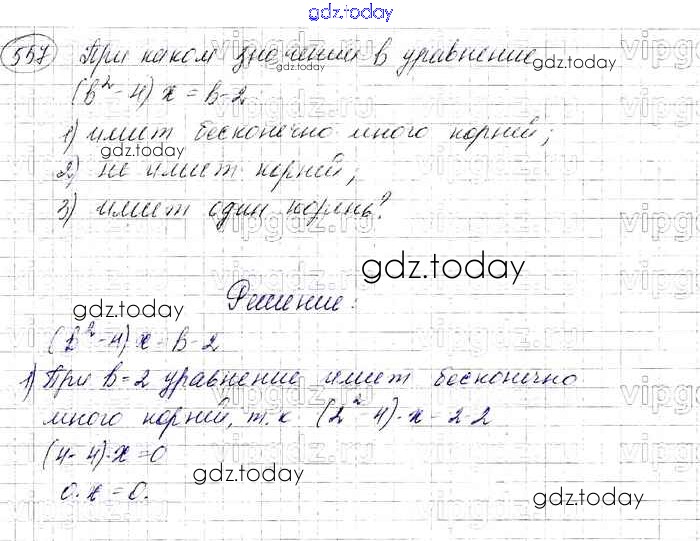 gdz.today
557 При каком значении b уравнение
gdz.today
(b² - 4) x = b - 2
1) имеет бесконечно много корней;
gdz.today
2) не имеет корней;
3) имеет один корень?
gdz.today
Решение:
gdz.today
(b² - 4) x = b - 2
1) При b = 2 уравнение имеет бесконечно
много корней, т.к (2² - 4) · x = 2 - 2
(4 - 4) · x = 0
gdz.today
0 · x = 0.
gdz.today